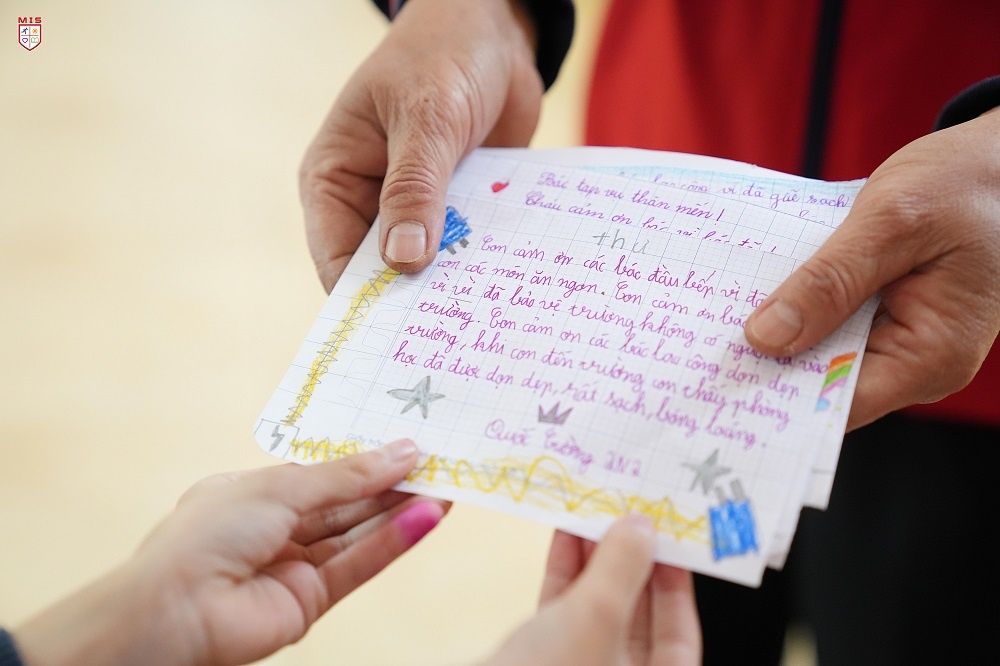 MIS
vì đã giữ sạch
Bác tạp vụ thân mến!
Cháu cảm ơn bác
thư
Con cảm ơn các bác đầu bếp vì đã
con các món ăn ngon. Con cảm ơn bác
vì vì đã bảo vệ trường không có người lạ vào
trường. Con cảm ơn các bác lao công dọn dẹp
trường, khi con đến trường con thấy phòng
học đã được dọn dẹp, rất sạch, bóng loáng.
Quốc Trường 2A2